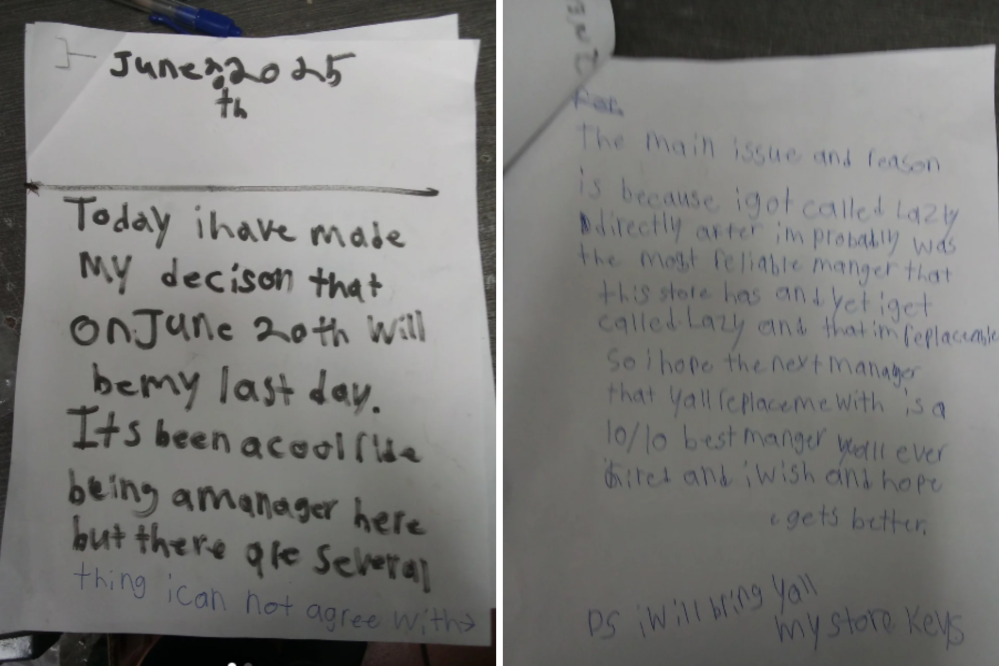 June 20 2025
th
Today i have made
My decison that
on June 20th will
be my last day.
Its been a cool ride
being a manager here
but there are several
thing i can not agree with→
The main issue and reason
is because i got called Lazy
directly after im probably was
the most reliable manger that
this store has and yet i get
called Lazy and that im replaceable
so i hope the next manager
that yall replace me with is a
10/10 best manger yall ever
hired and i wish and hope
gets better.
PS i will bring yall
my store keys